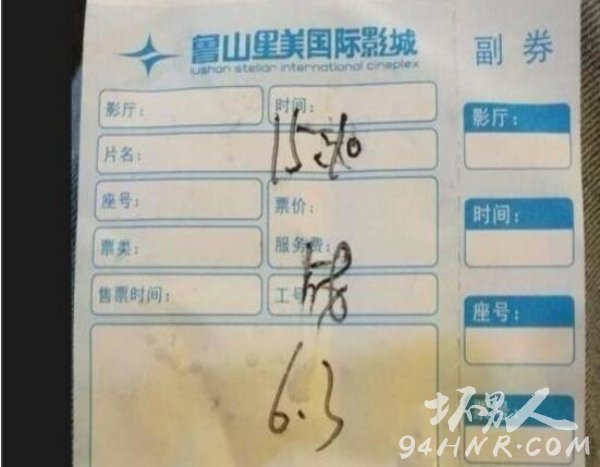 鲁山星美国际影城
lushan stellar international cineplex
副券
影厅：
时间：
片名：
座号：
票价：
票类：
服务费：
售票时间：
工号：
6.3
影厅：
时间：
座号：
坏男人
94HNR.COM